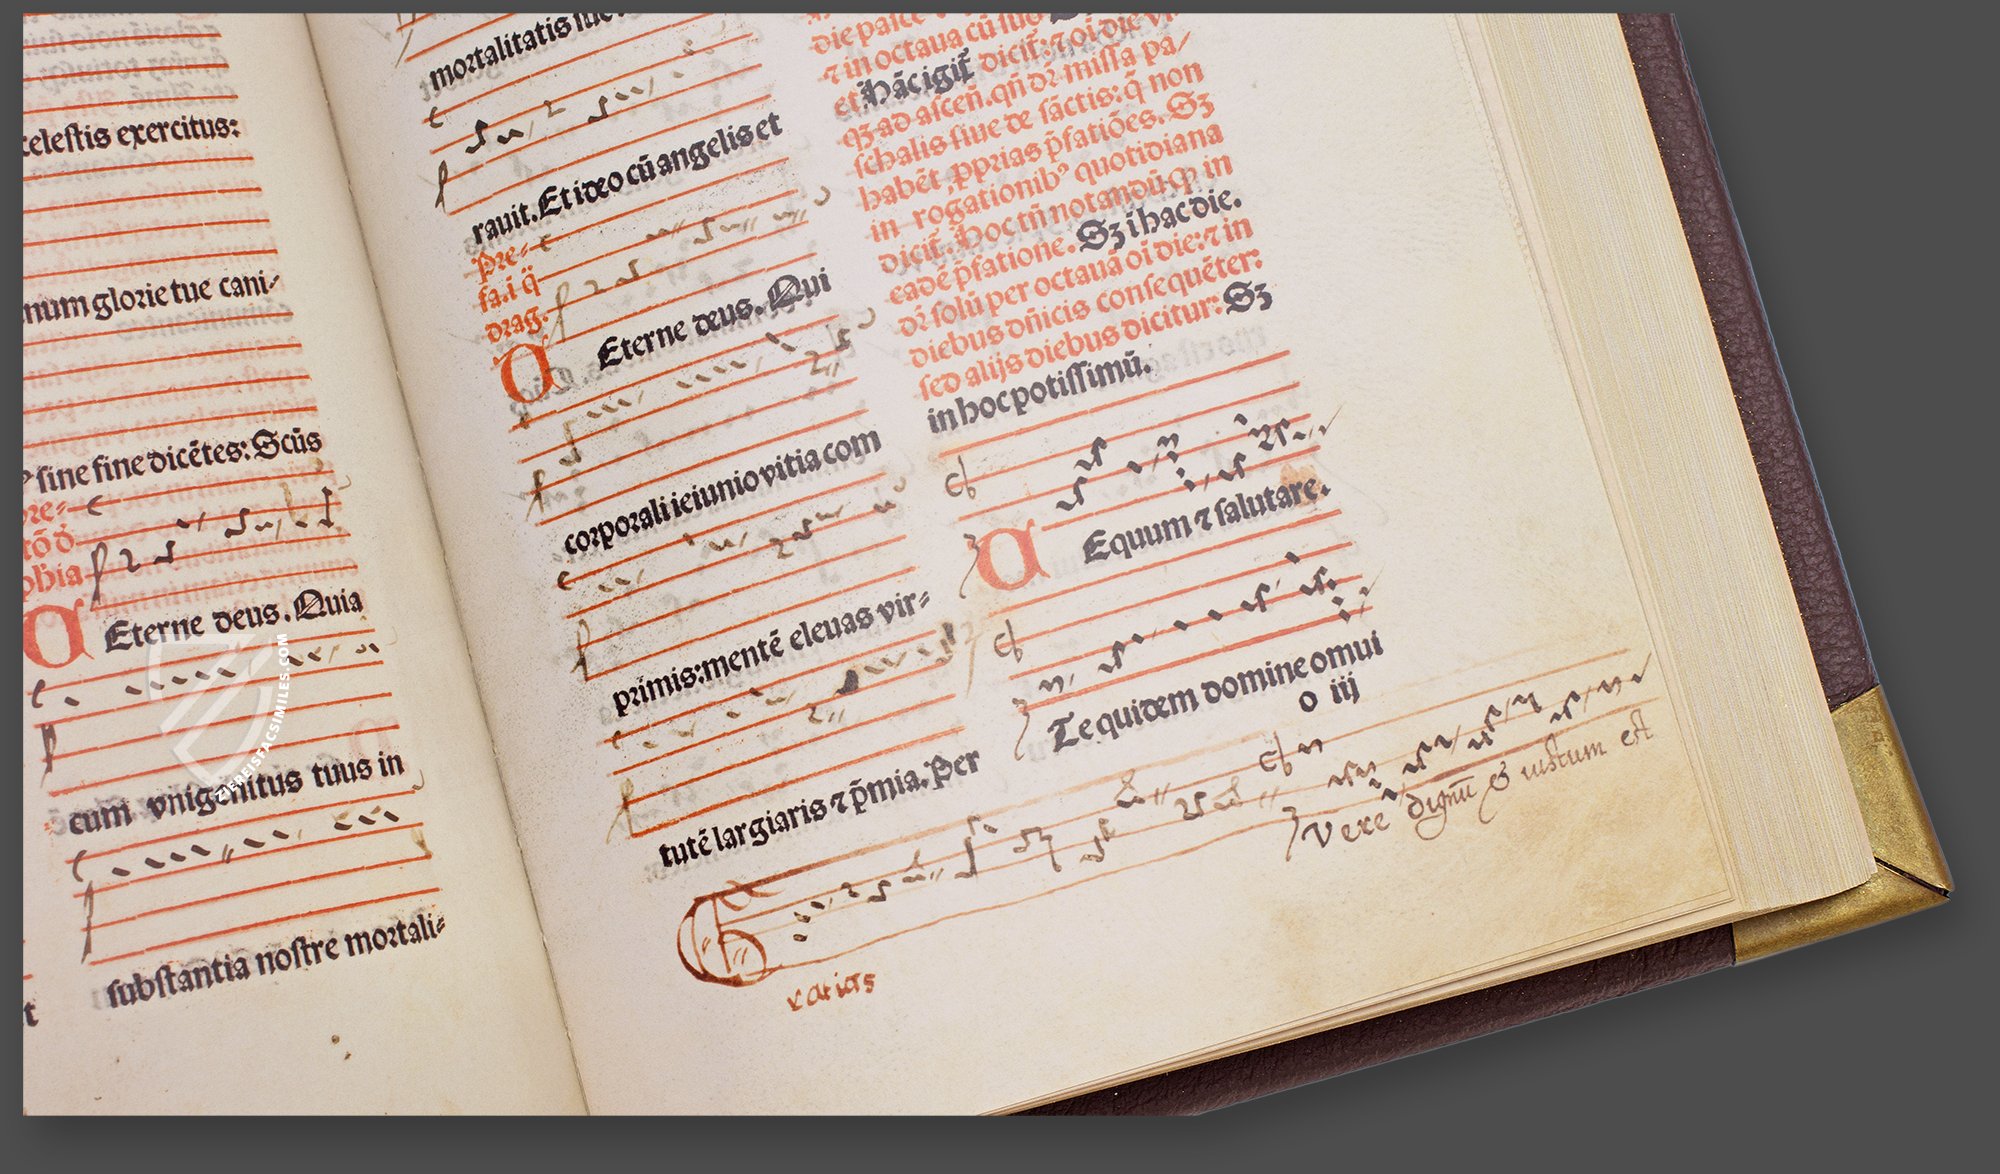 celestis exercitus:
num glorie tue cani⸗
sine fine dicētes: Scūs
pre⸗
tō d̄
phia
Eterne deus. Quia
cum vnigenitus tuus in
substantia nostre mortali⸗
mortalitatis
rauit. Et ideo cū angelis et
Pre⸗
fa. i q̄
drag.
Eterne deus. Qui
corporali ieiunio vitia com
primis: mentē eleuas vir⸗
tutē largiaris ⁊ p̄mia. Per
⁊ in octaua cū
et Hāc igit̄ dicit̄: ⁊ oi die
qꝫ ad ascen̄. qn̄ dr̄ missa pa/
schalis siue de sāctis: q̄ non
habēt ꝓprias p̄fatiōes. Sꝫ
in rogationibꝰ quotidiana
dicit̄. Hoc tn̄ notandū ꝙ in
eadē p̄fatione. Sꝫ i hac die.
dr̄ solū per octauā oi die: ⁊ in
diebus dn̄icis consequēter:
sed alijs diebus dicitur: Sꝫ
in hoc potissimū.
Equum ⁊ salutare.
Te quidem domine omui
o iij
Vere dignū & iustum est
G
ratias
ZIEREISFACSIMILES.COM